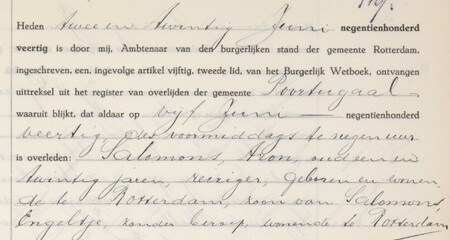 Heden twee en twintig Juni negentienhonderd
veertig is door mij, Ambtenaar van den burgerlijken stand der gemeente Rotterdam,
ingeschreven, een, ingevolge artikel vijftig, tweede lid, van het Burgerlijk Wetboek, ontvangen
uittreksel uit het register van overlijden der gemeente Poortugaal
waaruit blijkt, dat aldaar op vijf Juni negentienhonderd
veertig, des voormiddags te negen uur
is overleden: Salomons, Aron, oud een en
twintig jaren, reiziger, geboren en wonen
de te Rotterdam, zoon van Salomons,
Engeltje, zonder beroep, wonende te Rotterdam